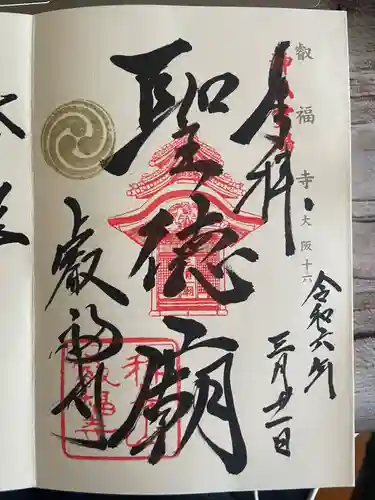 叡福寺 大阪十六
奉拝
令和六年
三月廿一日
聖徳廟
叡福寺